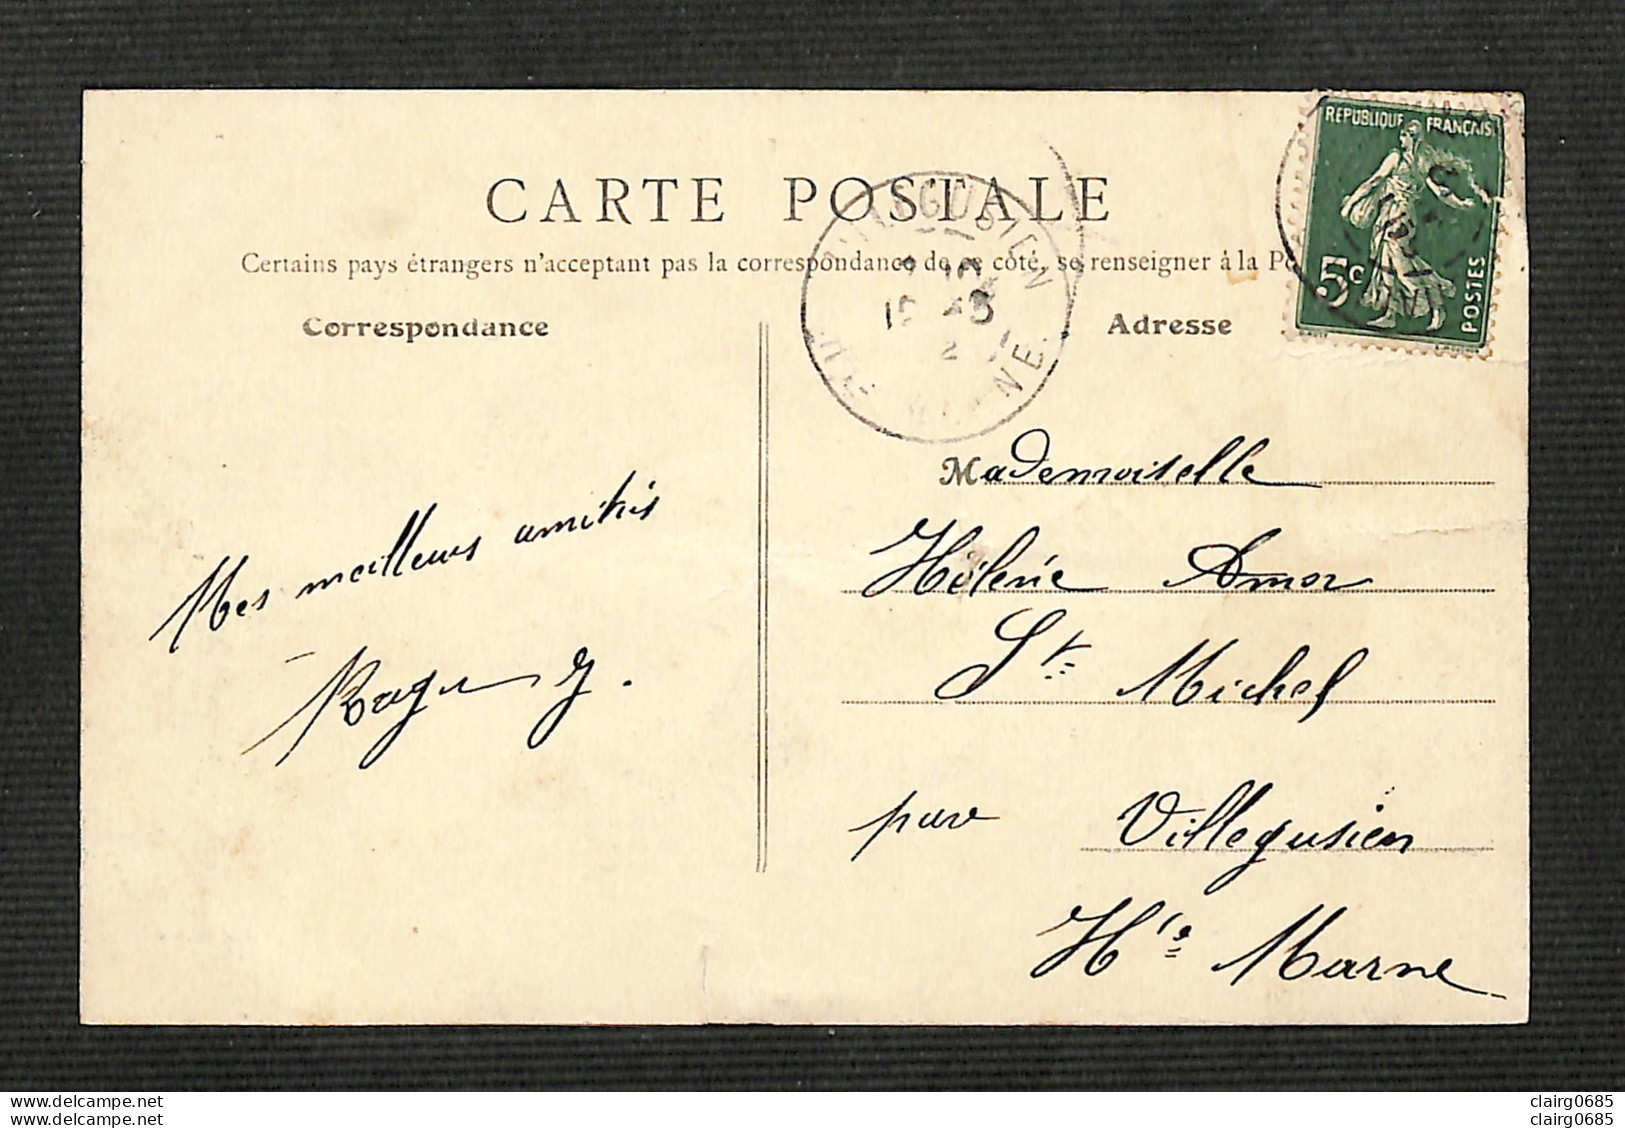 CARTE POSTALE
Certains pays étrangers n'acceptant pas la correspondance de ce côté, se renseigner à la
Correspondance
Adresse
RÉPUBLIQUE FRANÇAISE
5c
POSTES
VILLEGUSIEN
Mademoiselle
Hélène Amor
St Michel
par Villegusien
Hte Marne
Mes meilleurs amitiés
delcampe.net
clairg0685
clairg0685